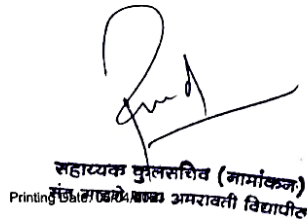 सहाय्यक कुलसचिव (नामांकन)
संत गाडगे बाबा अमरावती विद्यापीठ
Printing Date: